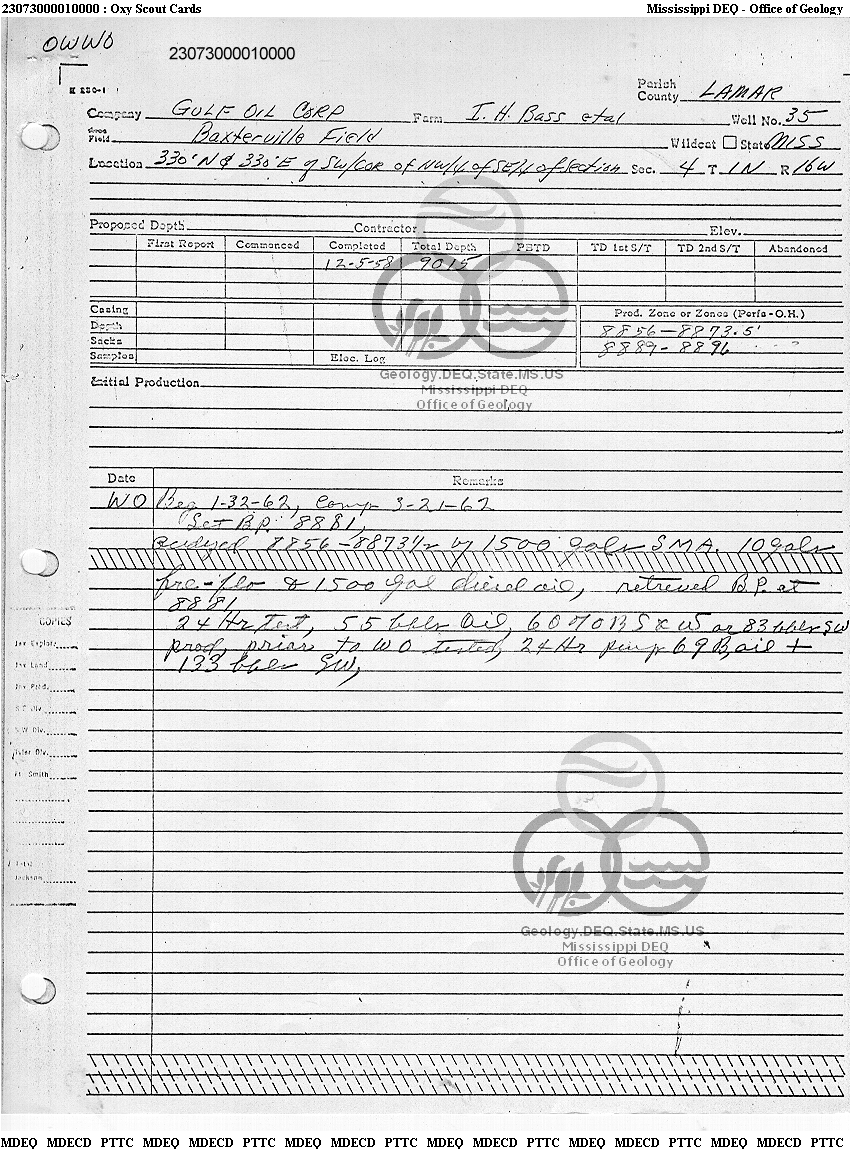 23073000010000 : Oxy Scout Cards Mississippi DEQ - Office of Geology
OWWO
23073000010000
Parish
County LAMAR
Company GULF OIL CORP Farm I. H. Bass etal Well No. 35
Field Baxterville Field Wildcat State MISS
Location 330' N & 330' E of SW/COR of NW/4 of SE/4 of Section Sec. 4 T 1N R 16W
Proposed Depth Contractor Elev.
First Report Commenced Completed Total Depth PBTD TD 1st S/T TD 2nd S/T Abandoned
12-5-58 9015
Casing Prod. Zone or Zones (Perfs-O.H.)
Depth 8856-8873.5'
Sacks 8889-8896
Samples Elec. Log
Geology.DEQ.State.MS.US
Initial Production
Mississippi DEQ
Office of Geology
Date Remarks
WO Beg 1-32-62, Comp 3-21-62
Set B.P. 8881,
acidized 8856-8873 1/2 w/ 1500 gals SMA. 10 gals
pre-flo & 1500 gal diesel oil, retrieved B.P. at
8881
24 Hr Test, 55 bbls oil, 60% BS & W or 83 bbls SW
prod, prior to WO tested, 24 Hr pump 69 B, oil +
133 bbls SW,
COPIES
Jax Explor.
Jax Land
Jax Prod.
S.T. Div.
S.W Div.
Tyler Div.
Ft. Smith
Jackson
Geology.DEQ.State.MS.US
Mississippi DEQ
Office of Geology
MDEQ MDECD PTTC MDEQ MDECD PTTC MDEQ MDECD PTTC MDEQ MDECD PTTC MDEQ MDECD PTTC MDEQ MDECD PTTC